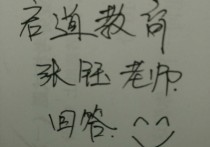 启道教育
张钰老师.
回答. ^^